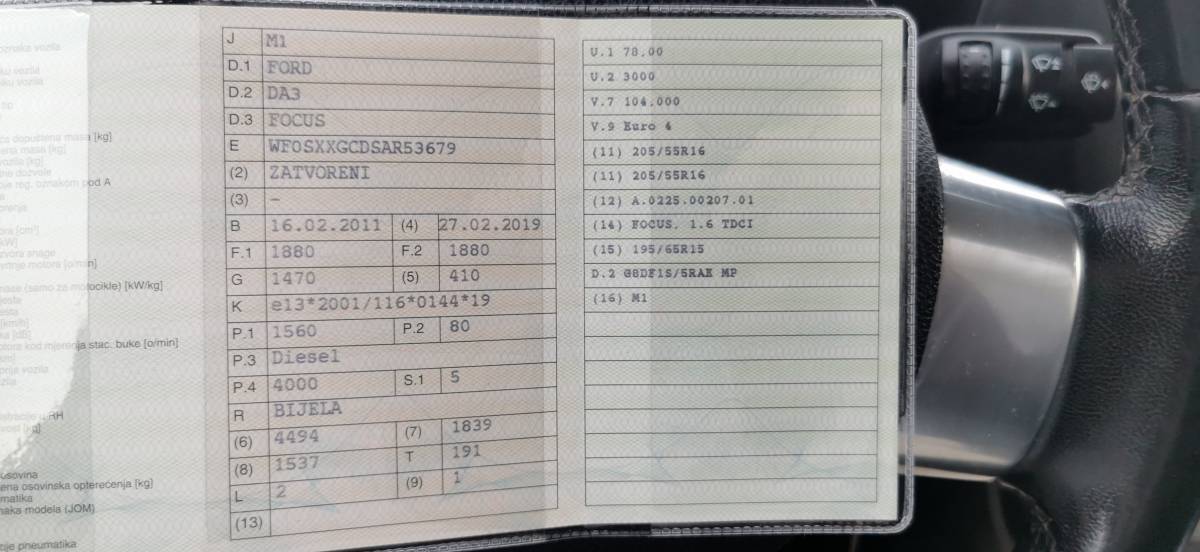 oznaka vozila
tip
dopuštena masa [kg]
masa [kg]
vozila [kg]
dozvole
reg. oznakom pod A
[cm³]
[kW]
snage
motora [o/min]
(samo za motocikle) [kW/kg]
[km/h]
[dB]
kod mjerenja stac. buke [o/min]
vozila
RH
[kg]
osovina
osovinska opterećenja [kg]
modela (JOM)
pneumatika
J M1
D.1 FORD
D.2 DA3
D.3 FOCUS
E WF0SXXGCDSAR53679
(2) ZATVORENI
(3) –
B 16.02.2011 (4) 27.02.2019
F.1 1880 F.2 1880
G 1470 (5) 410
K e13*2001/116*0144*19
P.1 1560 P.2 80
P.3 Diesel
P.4 4000 S.1 5
R BIJELA
(6) 4494 (7) 1839
(8) 1537 T 191
L 2 (9) 1
(13)
U.1 78.00
U.2 3000
V.7 104.000
V.9 Euro 4
(11) 205/55R16
(11) 205/55R16
(12) A.0225.00207.01
(14) FOCUS. 1.6 TDCI
(15) 195/65R15
D.2 G8DF1S/5RAE MP
(16) M1